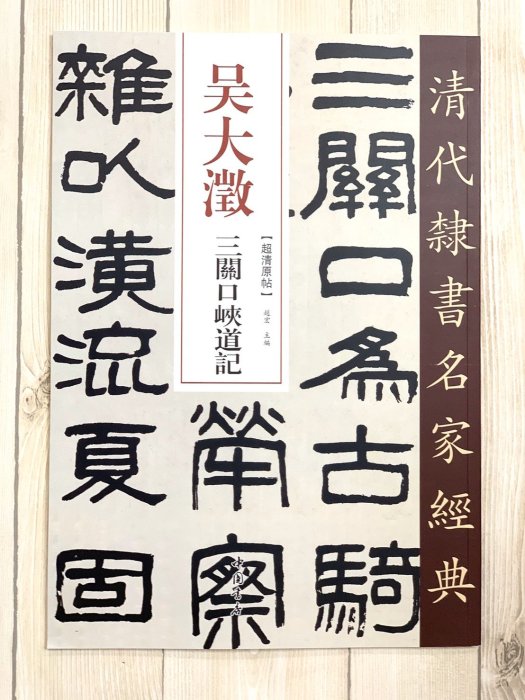 清代隸書名家經典
吴大澂
三關口峽道記
【超清原帖】
趙宏 主編
三關口為古騎
榮察
雜以潢流夏固
中国書店